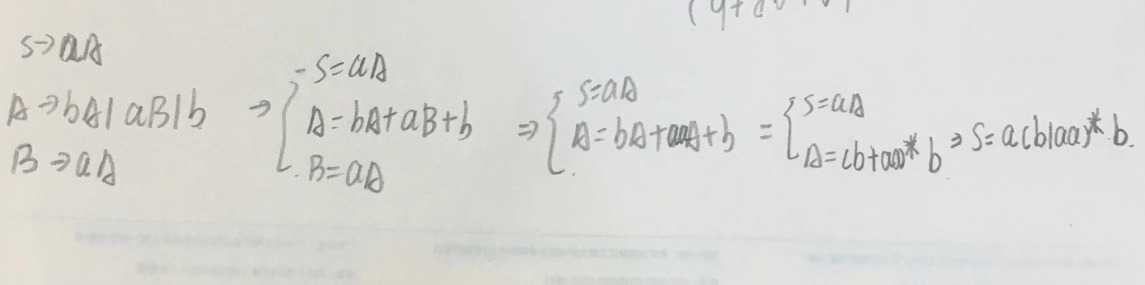 S→aA
A→bA|aB|b
B→aA
⇒
S=aA
A=bA+aB+b
B=aA
⇒
S=aA
A=bA+aaA+b
=
S=aA
A=(b+aa)* b
⇒ S=a(b|aa)* b.